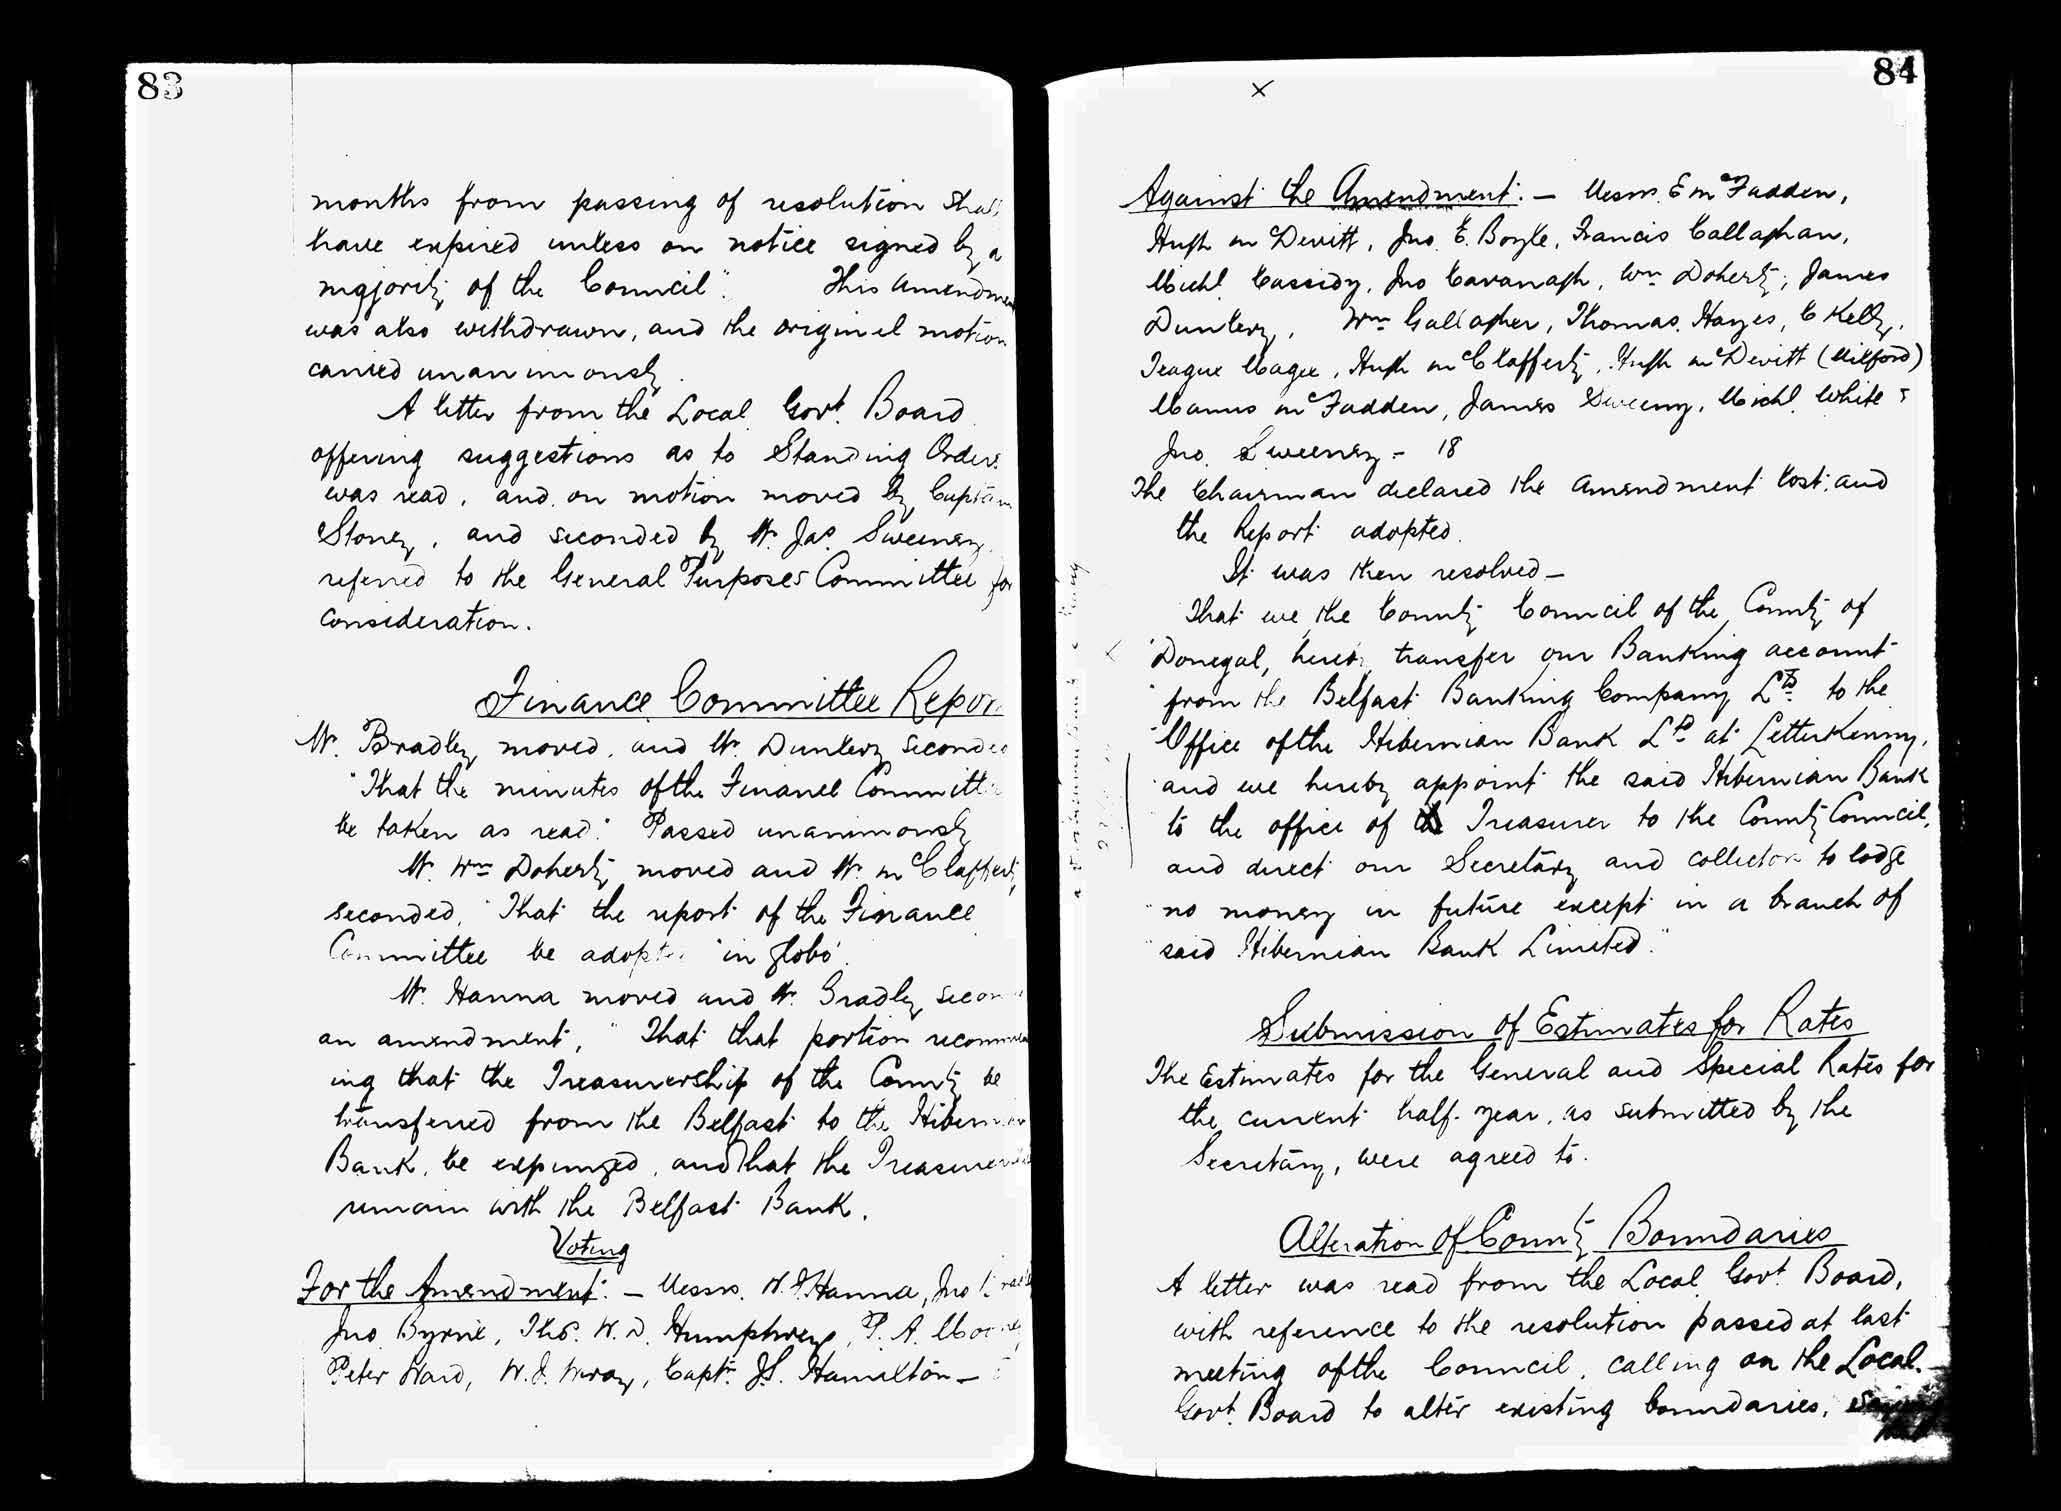 83
months from passing of resolution shall
have expired unless on notice signed by a
majority of the Council". This amendment
was also withdrawn, and the original motion
carried unanimously.
A letter from the Local Govt. Board
offering suggestions as to Standing Orders
was read, and on motion moved by Captain
Stoney, and seconded by Mr. Jas. Sweeney
referred to the General Purposes Committee for
consideration.
Finance Committee Report
Mr. Bradley moved, and Mr. Dunlevy seconded
"That the minutes of the Finance Committee
be taken as read." Passed unanimously
Mr. Wm Doherty moved and Mr. McClafferty
seconded, "That the report of the Finance
Committee be adopted 'in globo'.
Mr. Hanna moved and Mr. Bradley second
an amendment, "That that portion recommend
ing that the Treasurership of the County be
transferred from the Belfast to the Hibernian
Bank, be expunged, and that the Treasurership
remain with the Belfast Bank.
Voting
For the Amendment: — Messrs. Hanna, Jno
Jno Byrne, Thos. W. D. Humphreys, P. A. Mooney,
Peter Ward, W. J. Wray, Capt. J.S. Hamilton —
84
x
Against the Amendment: — Messrs. E McFadden,
Hugh McDevitt, Jno. E. Boyle, Francis Callaghan,
Michl. Cassidy, Jno Cavanagh, Wm Doherty, James
Dunlevy, Wm Gallagher, Thomas Hayes, C Kelly,
Teague Magee, Hugh McClafferty, Hugh McDevitt (Milford)
Manus McFadden, James Sweeny, Michl. White &
Jno. Sweeney - 18
The Chairman declared the amendment lost, and
the Report adopted.
It was then resolved —
That we the County Council of the County of
"Donegal, hereby transfer our Banking account
"from the Belfast Banking Company Ltd to the
"Office of the Hibernian Bank Ld at Letterkenny,
"and we hereby appoint the said Hibernian Bank
to the office of Treasurer to the County Council,
and direct our Secretary and collectors to lodge
"no money in future except in a branch of
"said Hibernian Bank Limited."
Submission of Estimates for Rates
The Estimates for the General and Special Rates for
the current half-year, as submitted by the
Secretary, were agreed to.
Alteration of County Boundaries
A letter was read from the Local Govt. Board,
with reference to the resolution passed at last
meeting of the Council, calling on the Local
Govt. Board to alter existing boundaries,